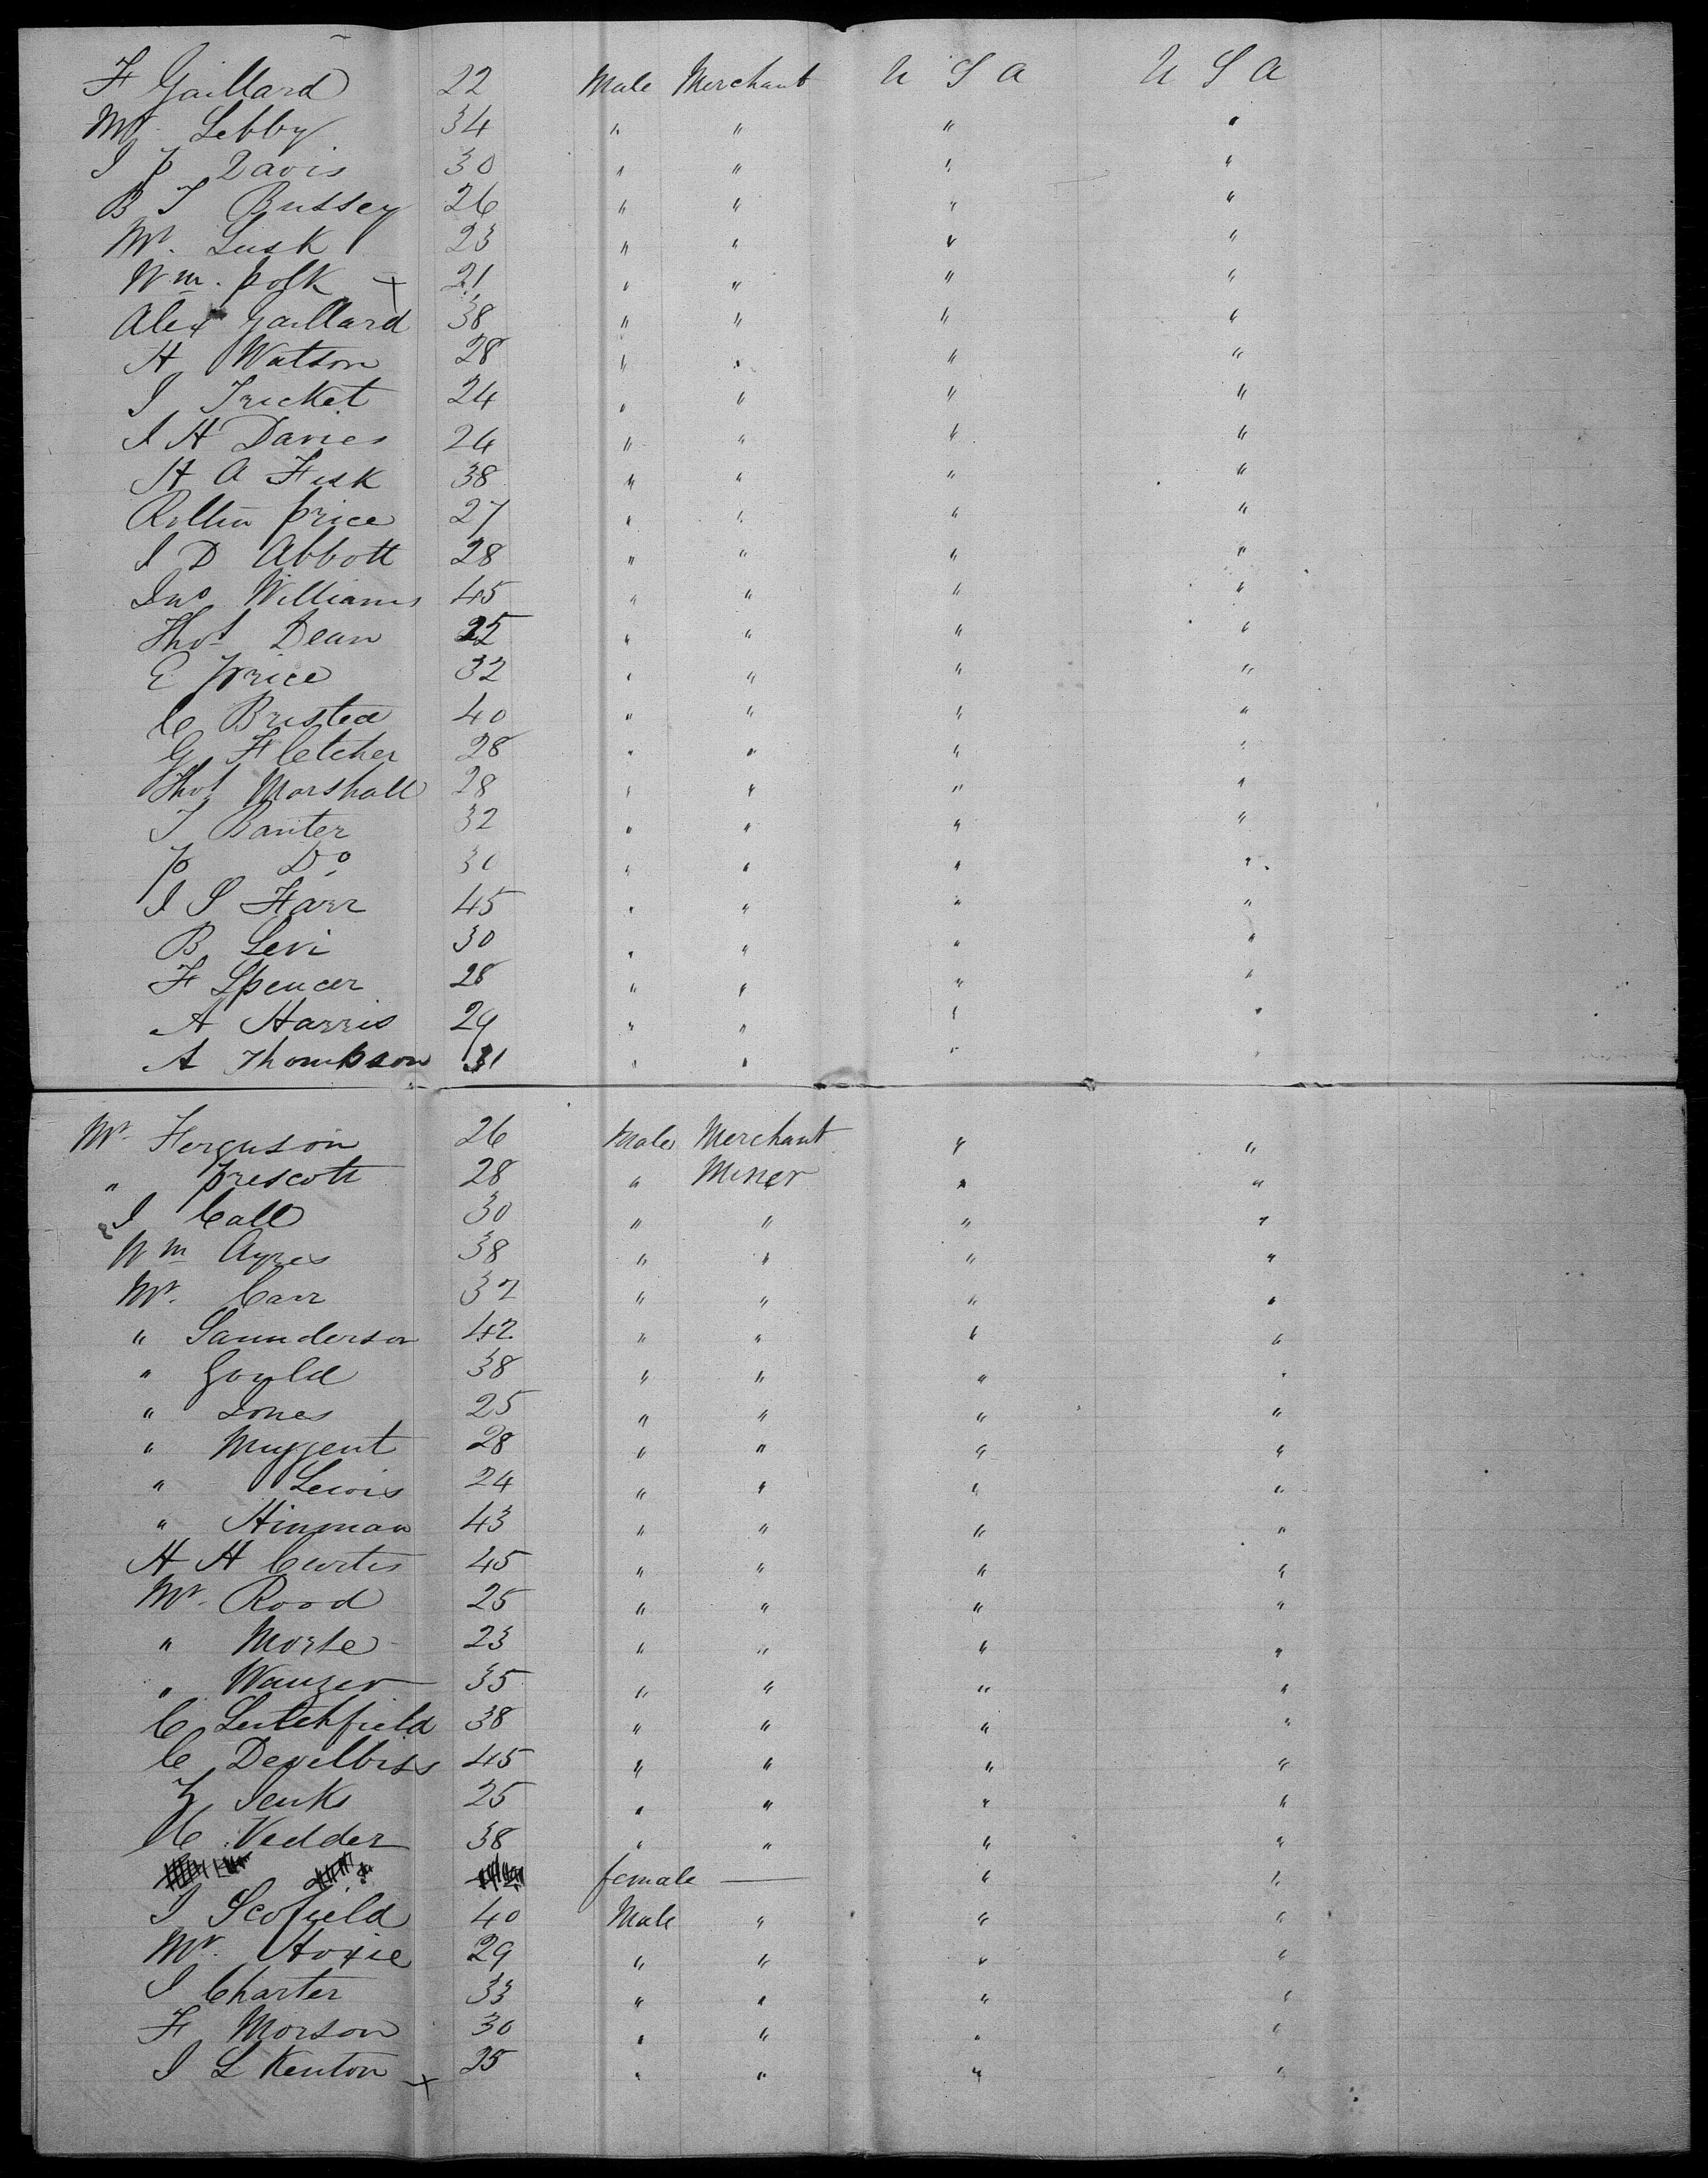 F Gaillard 22 Male Merchant U S A U S A
Mr Lebby 34 " " " "
I P Davis 30 " " " "
B T Bussey 26 " " " "
Mr. Lusk 23 " " " "
Wm. Polk + 21 " " " "
Alex Gaillard 38 " " " "
H Watson 28 " " " "
I Tricket 24 " " " "
I H Davies 24 " " " "
H A Fisk 38 " " " "
Rollin Price 27 " " " "
I D Abbott 28 " " " "
Jno Williams 45 " " " "
Thos Dean 25 " " " "
E Price 32 " " " "
C Bristed 40 " " " "
G Fletcher 28 " " " "
Thos Marshall 28 " " " "
T Banter 32 " " " "
P Do 30 " " " "
I S Farr 45 " " " "
B Levi 30 " " " "
F Spencer 28 " " " "
A Harris 29 " " " "
A Thompson 31 " " " "
Mr Ferguson 26 Male Merchant " "
" Prescott 28 " Miner " "
I Call 30 " " " "
Wm Ayres 38 " " " "
Mr. Carr 32 " " " "
" Saunderson 42 " " " "
" Gould 38 " " " "
" Jones 25 " " " "
" 28 " " " "
" Lewis 24 " " " "
" Hinman 43 " " " "
H H Curtis 45 " " " "
Mr. Rood 25 " " " "
" Morse 23 " " " "
" Wanzer 35 " " " "
C Leitchfield 38 " " " "
C Develbiss 45 " " " "
Z Jenks 25 " " " "
C Vedder 38 " " " "
female — " "
I Scofield 40 Male " " "
Mr. Hoxie 29 " " " "
I Charter 33 " " " "
F Morson 30 " " " "
I L Kenton + 25 " " " "